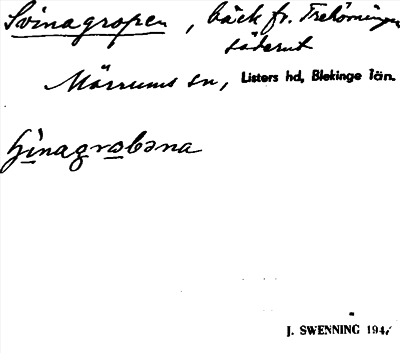 Svinagropen, bäck fr. Trehörningen
söderut
Mörrums sn, Listers hd, Blekinge län.
hinagrabəna
J. SWENNING 194